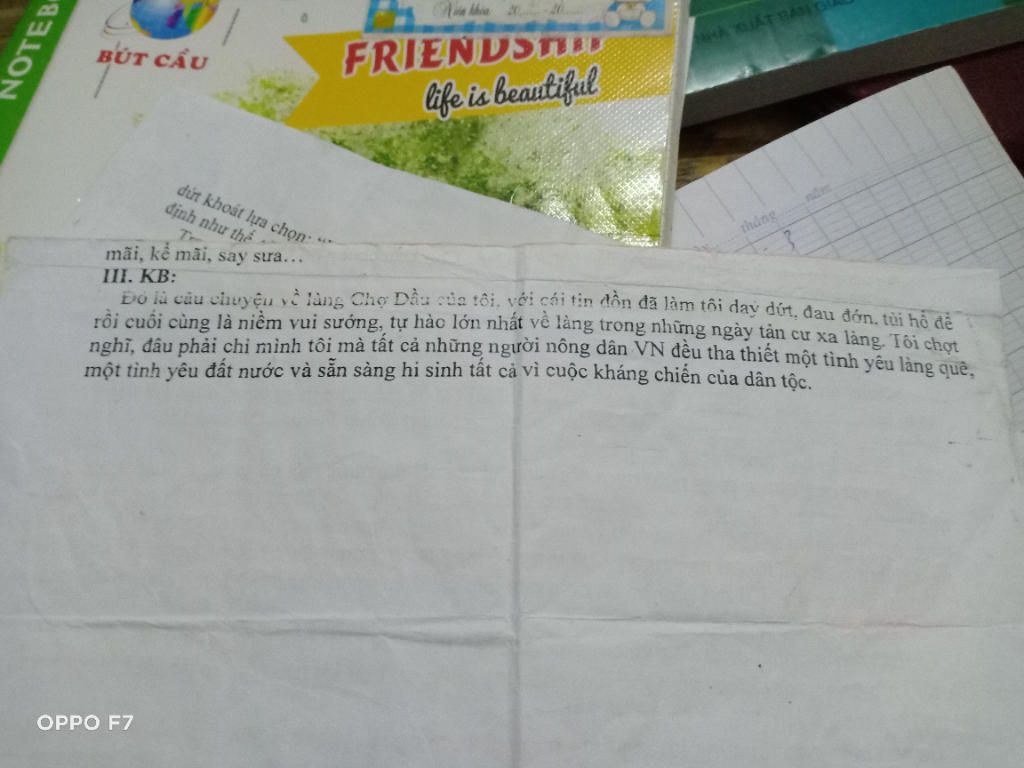 NOTE B
BÚT CẦU
Niên khóa: 20 - 20
FRIENDSHIP
life is beautiful
tháng năm
3
dứt khoát lựa chọn:
định như thế
mãi, kể mãi, say sưa...
III. KB:
Đó là câu chuyện về làng Chợ Dầu của tôi, với cái tin đồn đã làm tôi day dứt, đau đớn, tủi hổ để
rồi cuối cùng là niềm vui sướng, tự hào lớn nhất về làng trong những ngày tản cư xa làng. Tôi chợt
nghĩ, đâu phải chỉ mình tôi mà tất cả những người nông dân VN đều tha thiết một tình yêu làng quê,
một tình yêu đất nước và sẵn sàng hi sinh tất cả vì cuộc kháng chiến của dân tộc.
OPPO F7